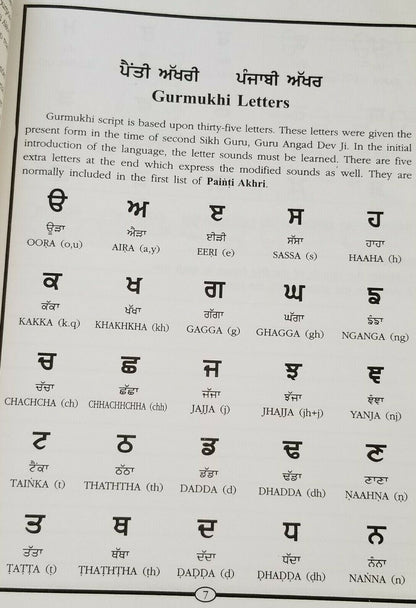 ਪੈਂਤੀ ਅੱਖਰੀ ਪੰਜਾਬੀ ਅੱਖਰ
Gurmukhi Letters
Gurmukhi script is based upon thirty-five letters. These letters were given the
present form in the time of second Sikh Guru, Guru Angad Dev Ji. In the initial
introduction of the language, the letter sounds must be learned. There are five
extra letters at the end which express the modified sounds as well. They are
normally included in the first list of Painṫi Akhri.
ੳ ਅ ੲ ਸ ਹ
ਊੜਾ ਐੜਾ ਈੜੀ ਸੱਸਾ ਹਾਹਾ
OORA (o,u) AIRA (a,y) EERI (e) SASSA (s) HAAHA (h)
ਕ ਖ ਗ ਘ ਙ
ਕੱਕਾ ਖੱਖਾ ਗੱਗਾ ਘੱਗਾ ਙੰਙਾ
KAKKA (k.q) KHAKHKHA (kh) GAGGA (g) GHAGGA (gh) NGANGA (ng)
ਚ ਛ ਜ ਝ ਞ
ਚੱਚਾ ਛੱਛਾ ਜੱਜਾ ਝੱਜਾ ਞੰਞਾ
CHACHCHA (ch) CHHACHHCHHA (chh) JAJJA (j) JHAJJA (jh+j) YANJA (nj)
ਟ ਠ ਡ ਢ ਣ
ਟੈਂਕਾ ਠੱਠਾ ਡੱਡਾ ਢੱਡਾ ਣਾਣਾ
TAIṄKA (t) THATHTHA (th) DADDA (d) DHADDA (dh) ṆAAHṆA (ṇ)
ਤ ਥ ਦ ਧ ਨ
ਤੱਤਾ ਥੱਥਾ ਦੱਦਾ ਧੱਦਾ ਨੰਨਾ
ṬAṬṬA (ṭ) ṬHAṬHṬHA (ṭh) ḌAḌḌA (ḍ) ḌHAḌḌA (ḍh) NAṄNA (n)
7